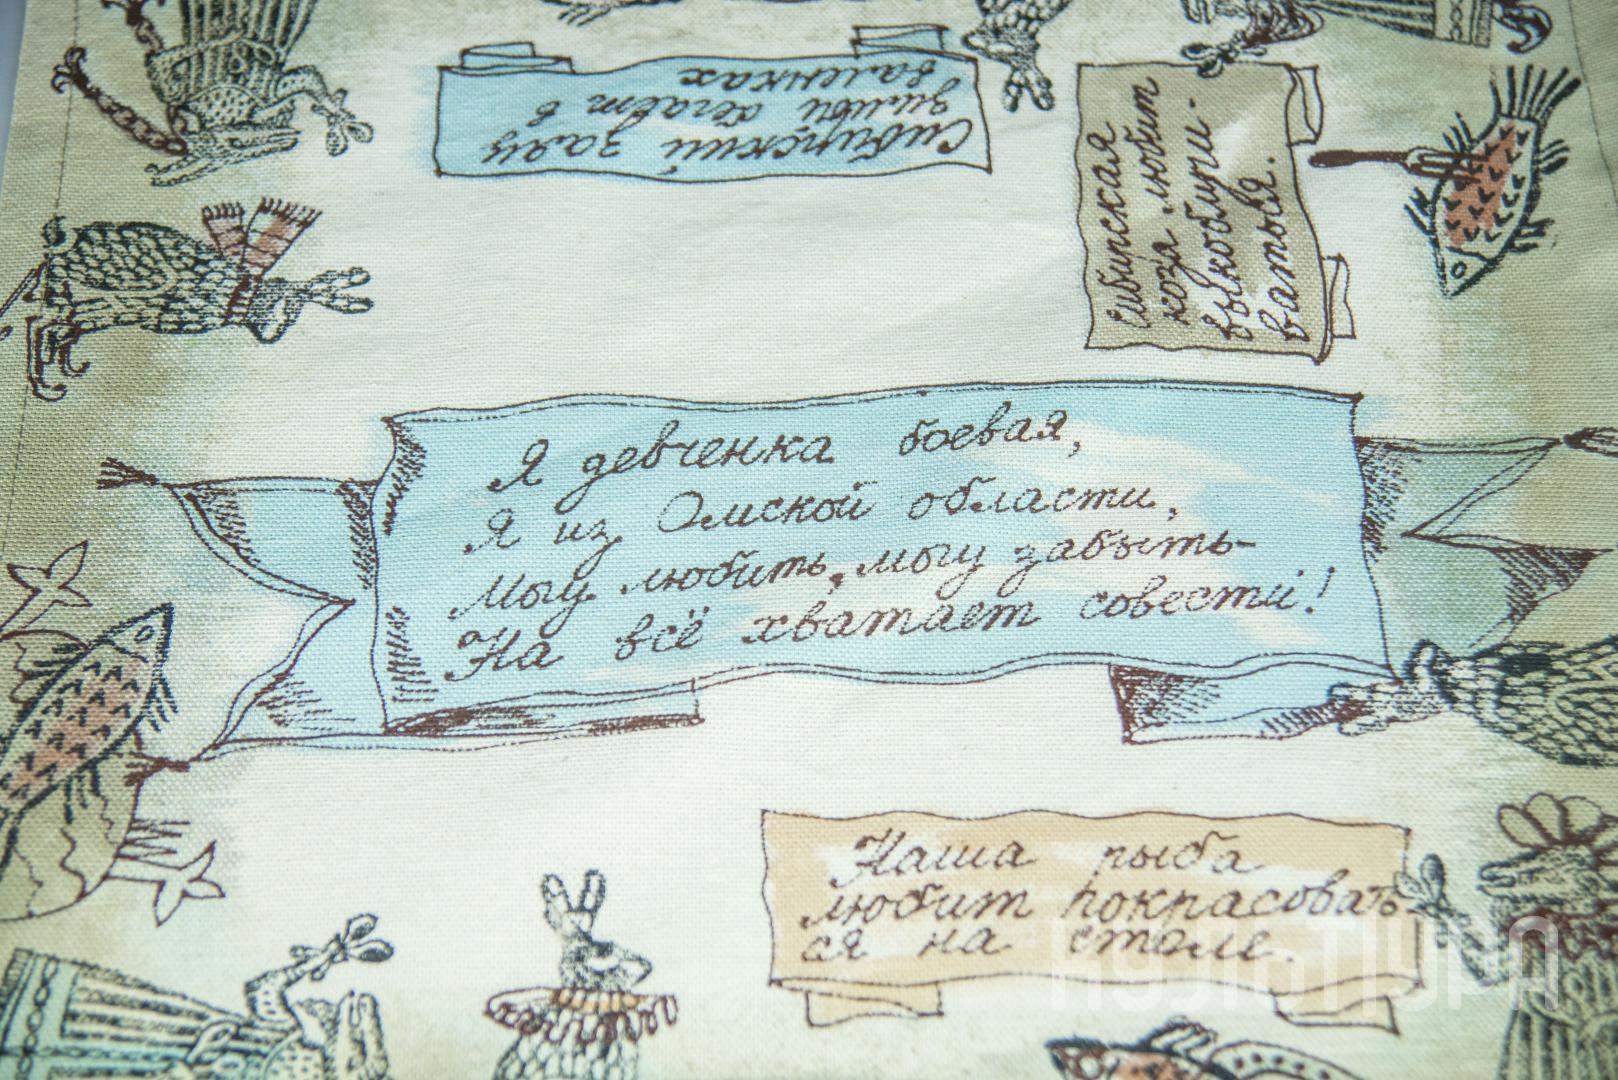 Сибирский заяц
зимой бегает в
валенках
Сибирская
коза любит
выкоблучи-
ваться.
Я девченка боевая,
Я из Омской области,
Могу любить, могу забыть-
На всё хватает совести!
Наша рыба
любит покрасовать-
ся на столе.
КУЛЬТУРА